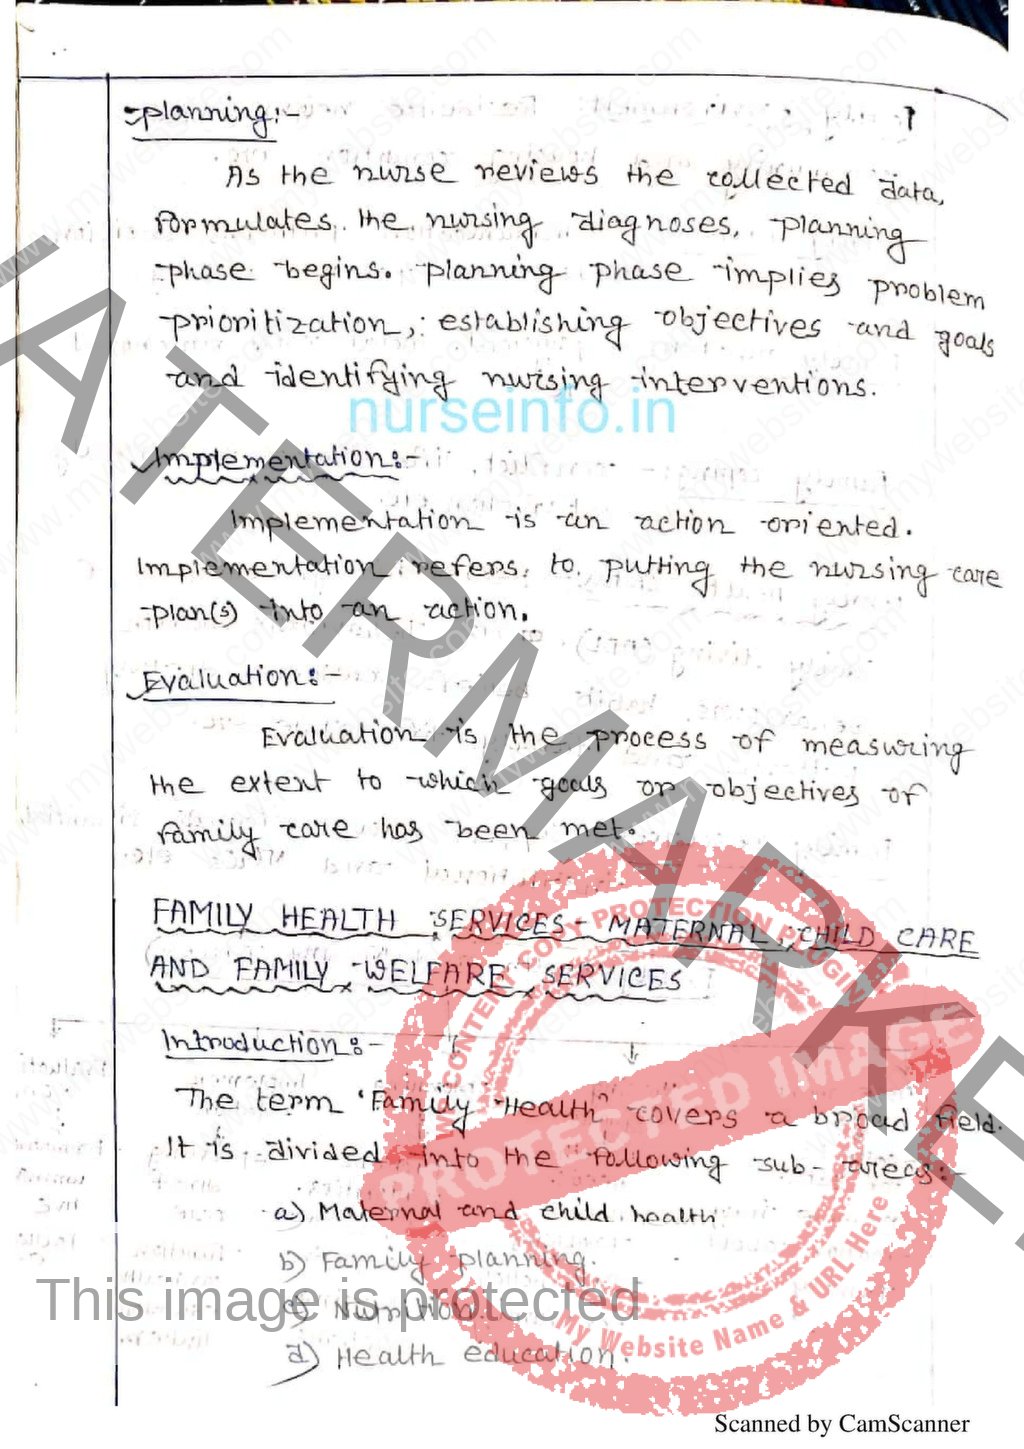 planning:-
As the nurse reviews the collected data,
formulates the nursing diagnoses, planning
phase begins. planning phase implies problem
prioritization, establishing objectives and goals
and identifying nursing interventions.
nurseinfo.in
Implementation:-
Implementation is an action oriented.
Implementation refers to putting the nursing care
plan(s) into an action.
Evaluation:-
Evaluation is the process of measuring
the extent to which goals or objectives of
family care has been met.
FAMILY HEALTH SERVICES - MATERNAL, CHILD CARE
AND FAMILY WELFARE SERVICES
Introduction:-
The term 'Family Health' covers a broad field.
It is divided into the following sub-areas:-
a) Maternal and child health
b) Family planning.
c) Nutrition
d) Health education.
This image is protected
WATERMARKED
WP CONTENT COPY PROTECTION PLUGIN
PROTECTED IMAGE
My Website Name & URL Here
www.mywebsite.com
Scanned by CamScanner